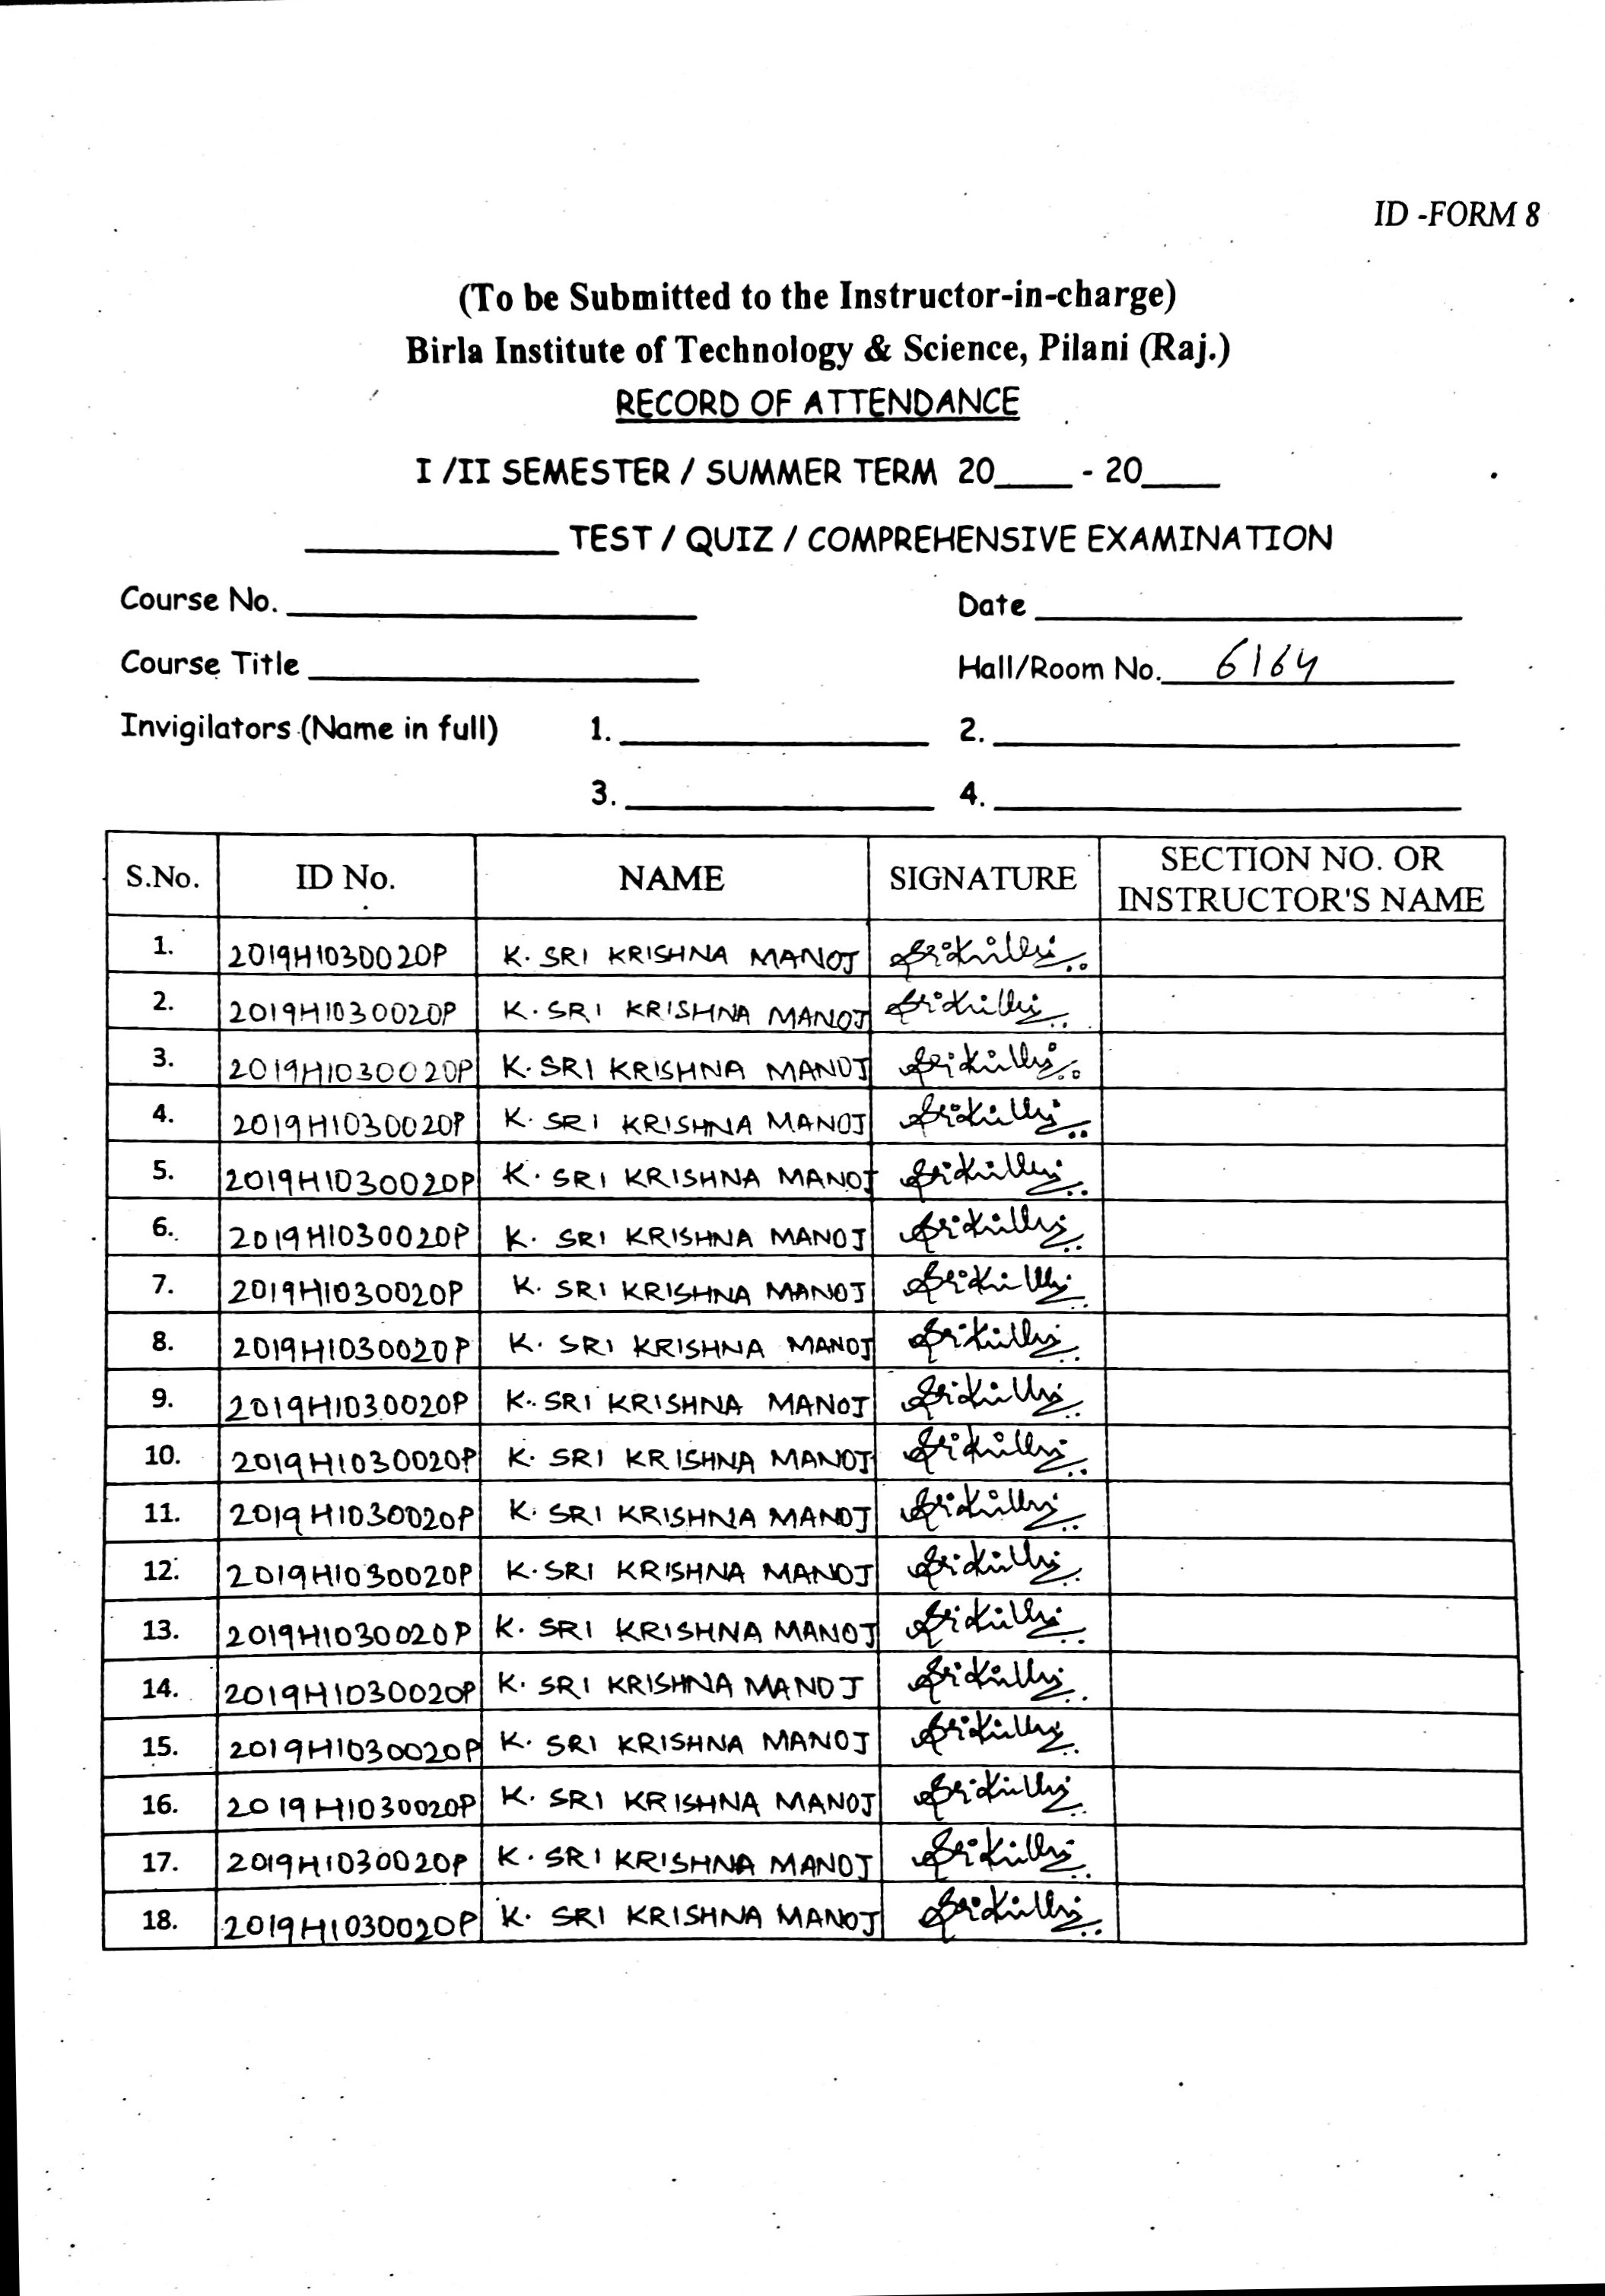 ID -FORM 8
(To be Submitted to the Instructor-in-charge)
Birla Institute of Technology & Science, Pilani (Raj.)
RECORD OF ATTENDANCE
I /II SEMESTER / SUMMER TERM 20____ - 20____
____________ TEST / QUIZ / COMPREHENSIVE EXAMINATION
Course No. ____________ Date ____________
Course Title ____________ Hall/Room No. 6164
Invigilators (Name in full) 1. ____________ 2. ____________
3. ____________ 4. ____________
S.No. ID No. NAME SIGNATURE SECTION NO. OR INSTRUCTOR'S NAME
1. 2019H1030020P K. SRI KRISHNA MANOJ
2. 2019H1030020P K. SRI KRISHNA MANOJ
3. 2019H1030020P K. SRI KRISHNA MANOJ
4. 2019H1030020P K. SRI KRISHNA MANOJ
5. 2019H1030020P K. SRI KRISHNA MANOJ
6. 2019H1030020P K. SRI KRISHNA MANOJ
7. 2019H1030020P K. SRI KRISHNA MANOJ
8. 2019H1030020P K. SRI KRISHNA MANOJ
9. 2019H1030020P K. SRI KRISHNA MANOJ
10. 2019H1030020P K. SRI KRISHNA MANOJ
11. 2019H1030020P K. SRI KRISHNA MANOJ
12. 2019H1030020P K. SRI KRISHNA MANOJ
13. 2019H1030020P K. SRI KRISHNA MANOJ
14. 2019H1030020P K. SRI KRISHNA MANOJ
15. 2019H1030020P K. SRI KRISHNA MANOJ
16. 2019H1030020P K. SRI KRISHNA MANOJ
17. 2019H1030020P K. SRI KRISHNA MANOJ
18. 2019H1030020P K. SRI KRISHNA MANOJ